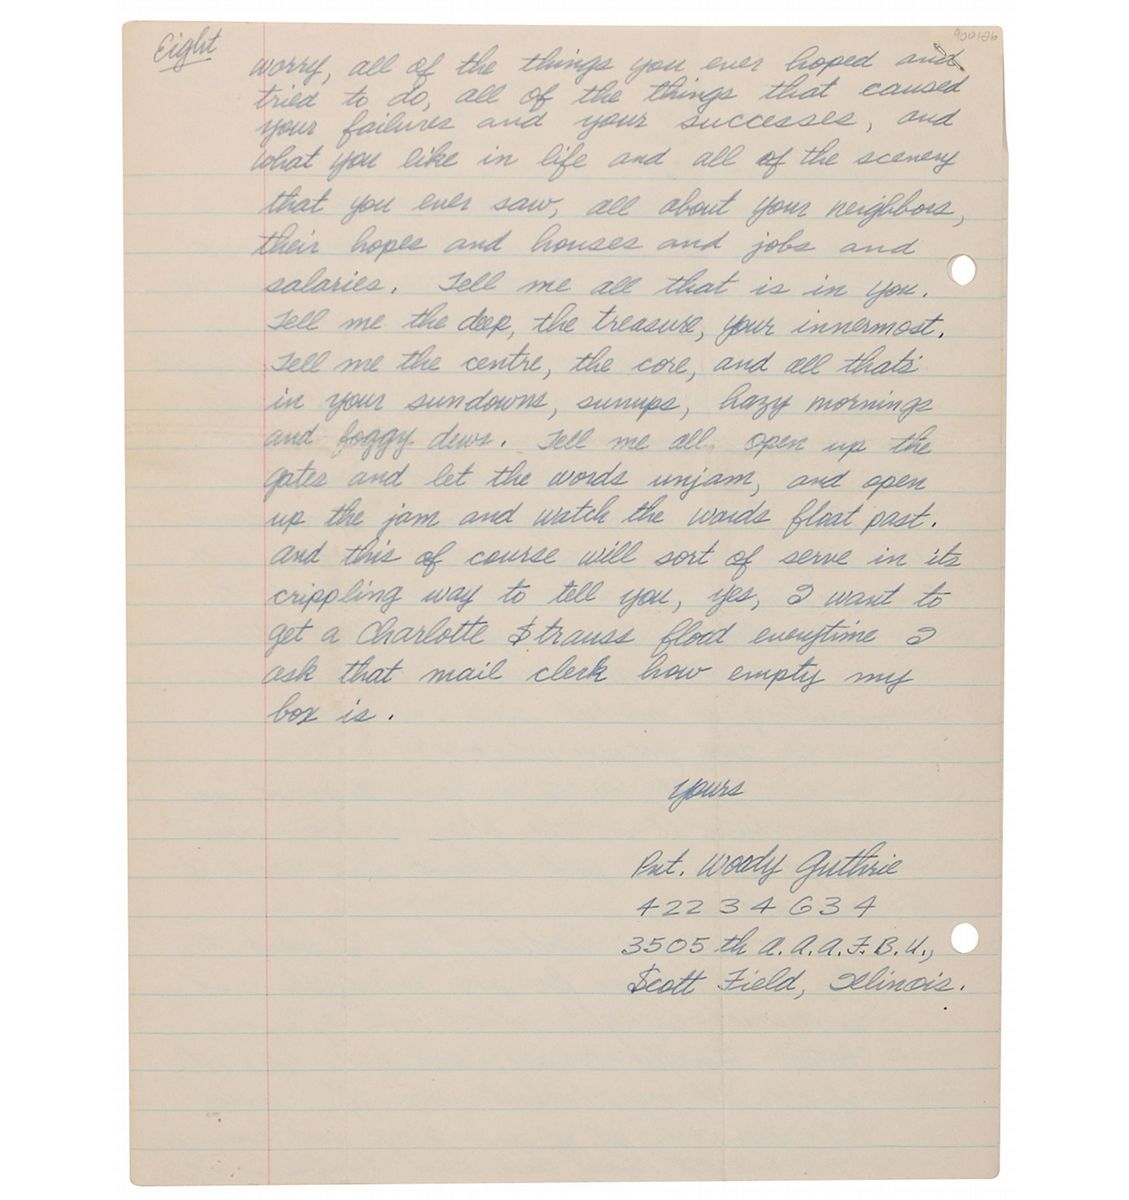 Eight
900126
worry, all of the things you ever hoped and
tried to do, all of the things that caused
your failures and your successes, and
what you like in life and all of the scenery
that you ever saw, all about your neighbors,
their hopes and houses and jobs and
salaries. Tell me all that is in you.
Tell me the deep, the treasure, your innermost.
Tell me the centre, the core, and all that's
in your sundowns, sunups, hazy mornings
and foggy dews. Tell me all. open up the
gates and let the words unjam, and open
up the jam and watch the words float past.
and this of course will sort of serve in its
crippling way to tell you, yes, I want to
get a Charlotte $trauss flood everytime I
ask that mail clerk how empty my
box is.
yours
Pvt. Woody Guthrie
42234634
3505th A.A.A.F.B.U.,
$cott Field, Illinois.